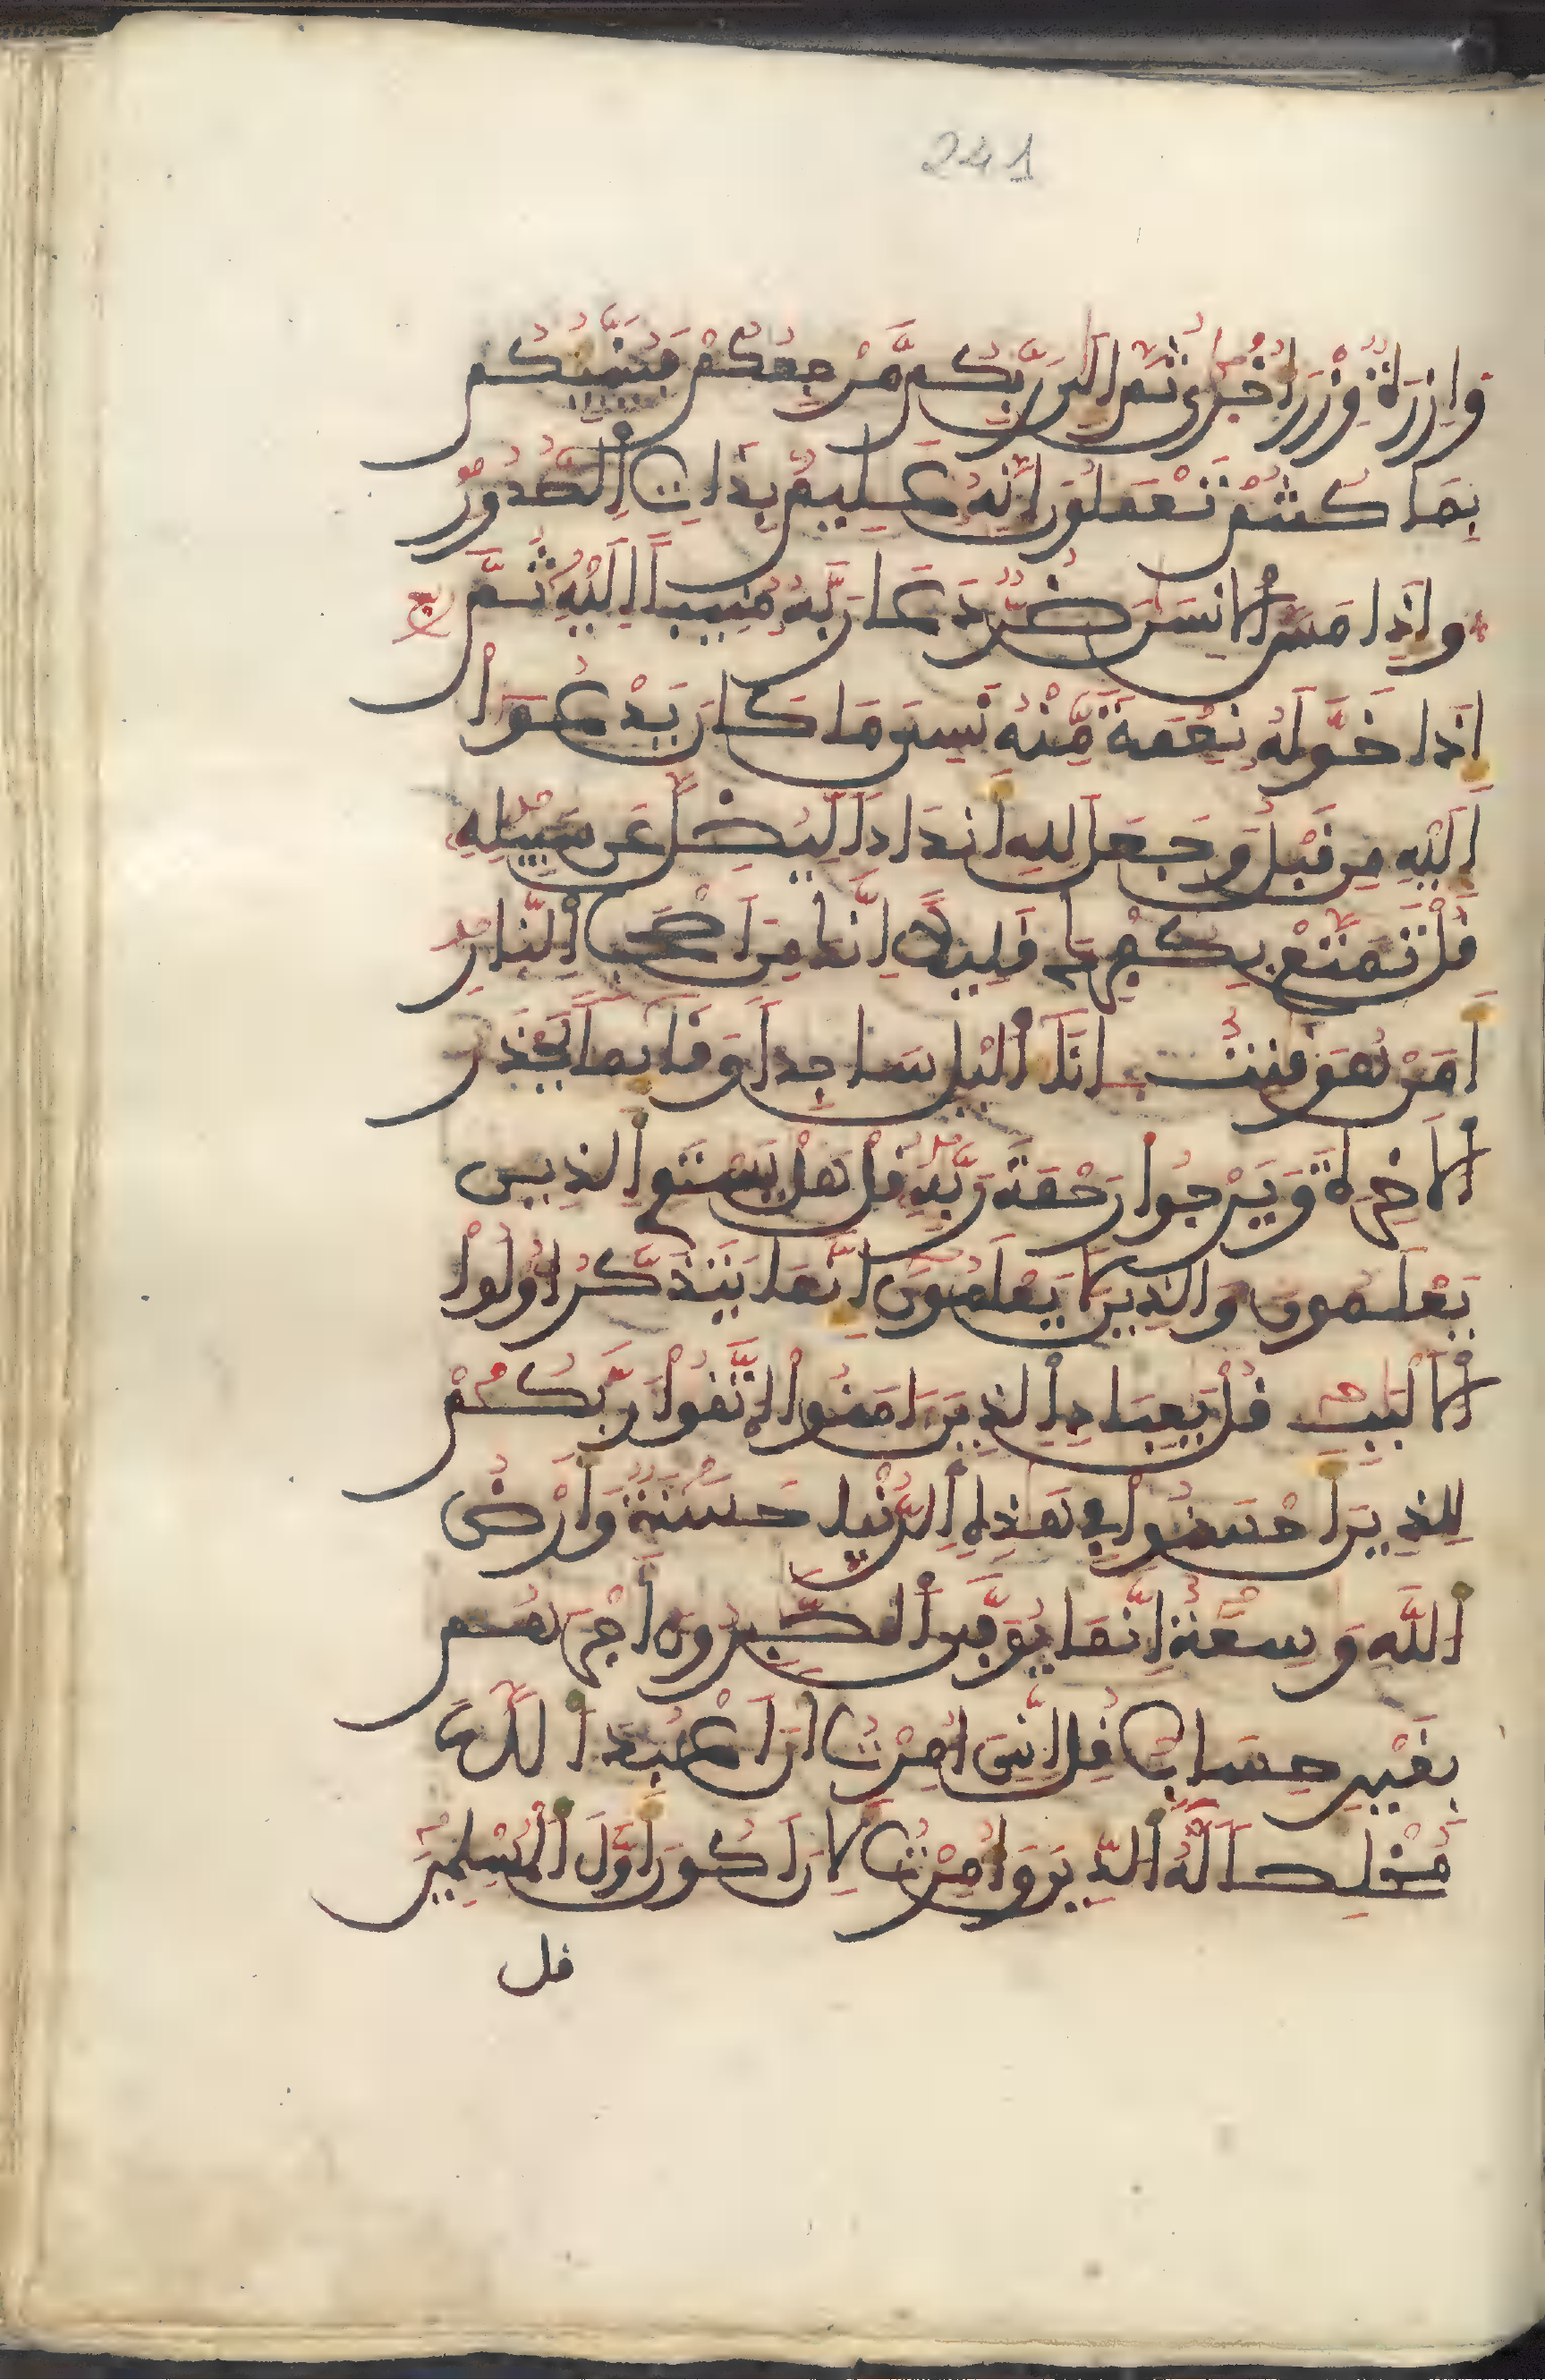 241
وَازِرَةٌ وِزْرَ أُخْرَىٰ ثُمَّ إِلَىٰ رَبِّكُم مَّرْجِعُكُمْ فَيُنَبِّئُكُم
بِمَا كُنتُمْ تَعْمَلُونَ إِنَّهُ عَلِيمٌ بِذَاتِ اِ۬لصُّدُورِ
وَإِذَا مَسَّ اَ۬لْإِنسَٰنَ ضُرٌّ دَعَا رَبَّهُ مُنِيباً إِلَيْهِ ثُمَّ
إِذَا خَوَّلَهُ نِعْمَةً مِّنْهُ نَسِيَ مَا كَانَ يَدْعُوٓاْ
إِلَيْهِ مِن قَبْلُ وَجَعَلَ لِلهِ أَندَاداً لِّيُضِلَّ عَن سَبِيلِهِ
قُلْ تَمَتَّعْ بِكُفْرِكَ قَلِيلاً إِنَّكَ مِنَ اَصْحَٰبِ اِ۬لنَّارِ
أَمَنْ هُوَ قَٰنِتٌ اٰنَآءَ اَ۬ليْلِ سَاجِداً وَقَآئِماً يَحْذَرُ
اُ۬لْأَخِرَةَ وَيَرْجُواْ رَحْمَةَ رَبِّهِ قُلْ هَلْ يَسْتَوِي اِ۬لذِينَ
يَعْلَمُونَ وَالذِينَ لَا يَعْلَمُونَ إِنَّمَا يَتَذَكَّرُ أُوْلُواْ
اُ۬لْأَلْبَٰبِ قُلْ يَٰعِبَادِ اِ۬لذِينَ ءَامَنُواْ اُ۪تَّقُواْ رَبَّكُمْ
لِلذِينَ أَحْسَنُواْ فِي هَٰذِهِ اِ۬لدُّنْيَا حَسَنَةٌ وَأَرْضُ
اُ۬للَّهِ وَٰسِعَةٌ اِنَّمَا يُوَفَّى اَ۬لصَّٰبِرُونَ أَجْرَهُم
بِغَيْرِ حِسَابٍ قُلِ اِنِّيَ أُمِرْتُ أَنَ اَعْبُدَ اَ۬للَّهَ
مُخْلِصاً لَّهُ اُ۬لدِّينَ وَأُمِرْتُ لِأَنَ اَكُونَ أَوَّلَ اَ۬لْمُسْلِمِينَ
قل